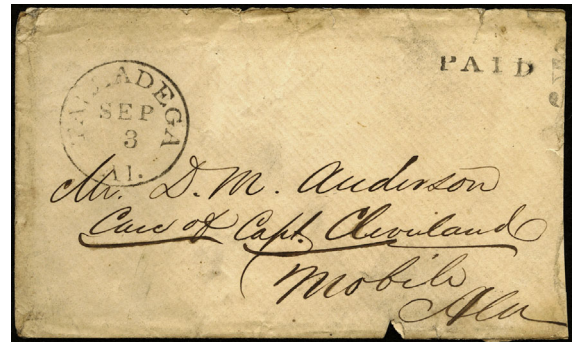 PAID
TALLADEGA
SEP
3
Al.
Mr. D. M. Anderson
Care of Capt. Cleveland
Mobile
Ala